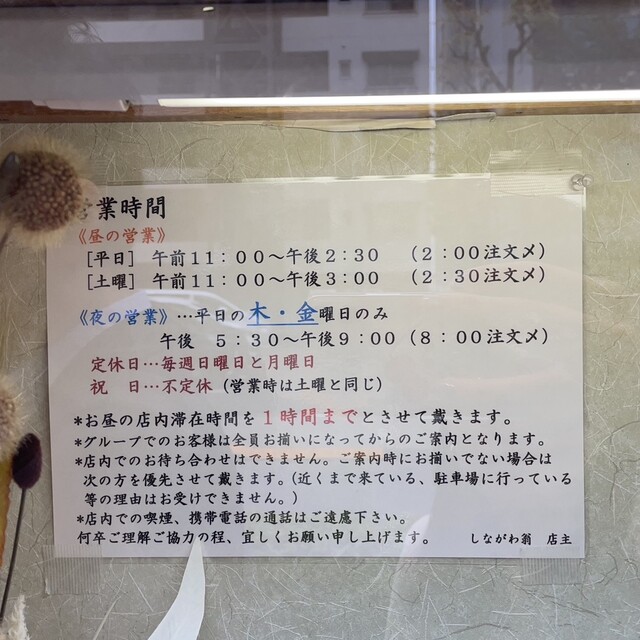 営業時間
《昼の営業》
[平日] 午前11：00～午後2：30 （2：00注文〆）
[土曜] 午前11：00～午後3：00 （2：30注文〆）
《夜の営業》…平日の木・金曜日のみ
午後 5：30～午後9：00（8：00注文〆）
定休日…毎週日曜日と月曜日
祝 日…不定休（営業時は土曜と同じ）
*お昼の店内滞在時間を１時間までとさせて戴きます。
*グループでのお客様は全員お揃いになってからのご案内となります。
*店内でのお待ち合わせはできません。ご案内時にお揃いでない場合は
次の方を優先させて戴きます。（近くまで来ている、駐車場に行っている
等の理由はお受けできません。）
*店内での喫煙、携帯電話の通話はご遠慮下さい。
何卒ご理解ご協力の程、宜しくお願い申し上げます。 しながわ翁 店主